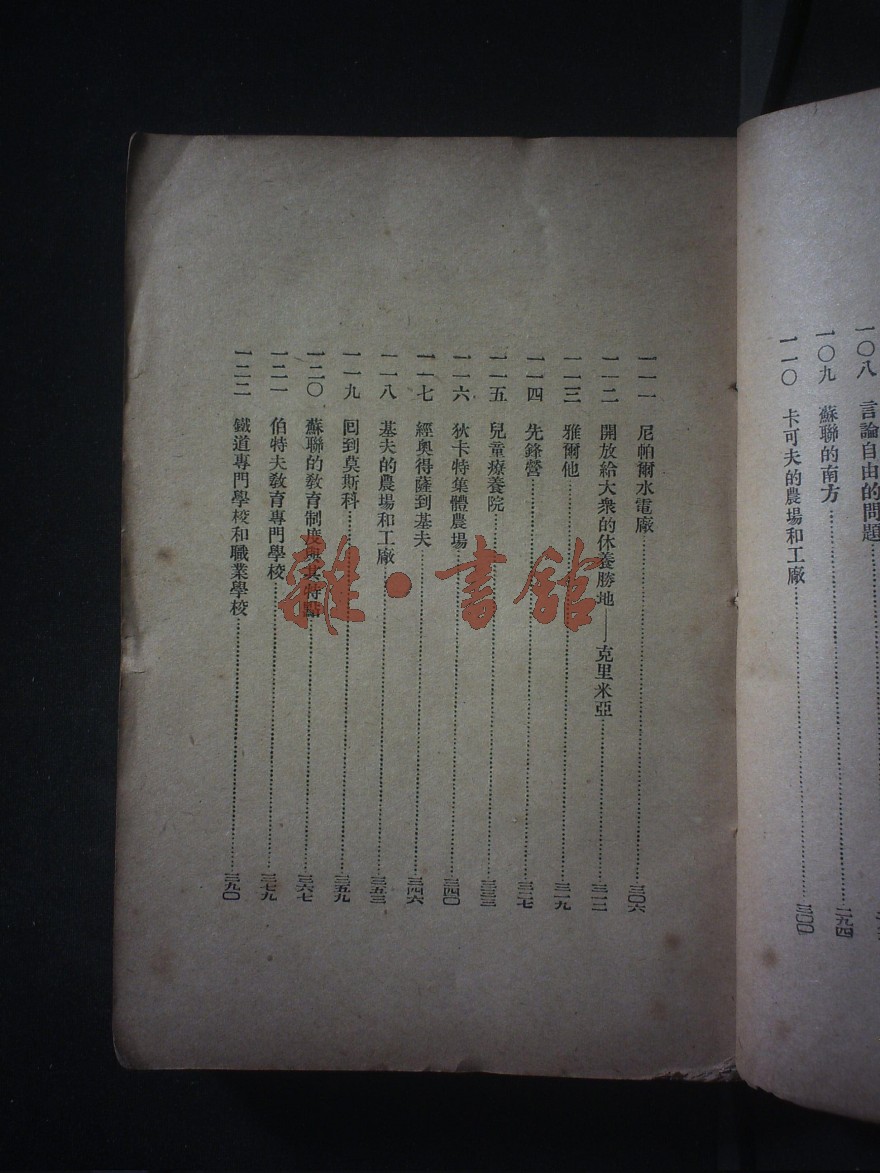 一〇八 言論自由的問題
一〇九 蘇聯的南方……二九四
一一〇 卡可夫的農場和工廠……三〇〇
一一一 尼帕爾水電廠……三〇六
一一二 開放給大衆的休養勝地——克里米亞……三一二
一一三 雅爾他……三一九
一一四 先鋒營……三二七
一一五 兒童療養院……三三三
一一六 狄卡特集體農場……三四〇
一一七 經奧得薩到基夫……三四六
一一八 基夫的農場和工廠……三五三
一一九 回到莫斯科……三五九
一二〇 蘇聯的敎育制度與其特點……三六七
一二一 伯特夫敎育專門學校……三七九
一二二 鐵道專門學校和職業學校……三九〇
雜·書館